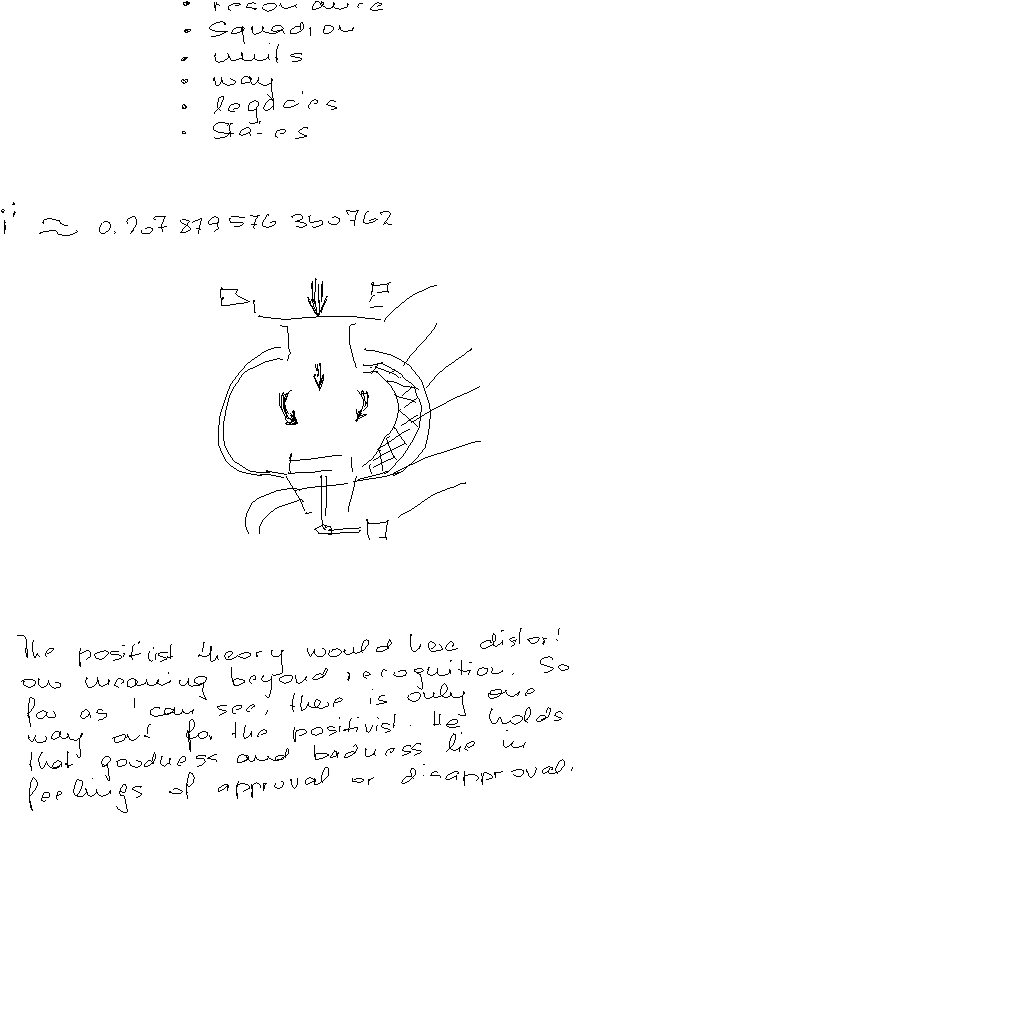 • resonance
• Squadron
• units
• way
• legacies
• States
iⁱ ≈ 0.207 879 576 350 762
The positivist theory would here distort
our meaning beyond recognition. So
far as I can see, there is only one
way out for the positivist. He holds
that goodness and badness lie in
feelings of approval or disapproval.